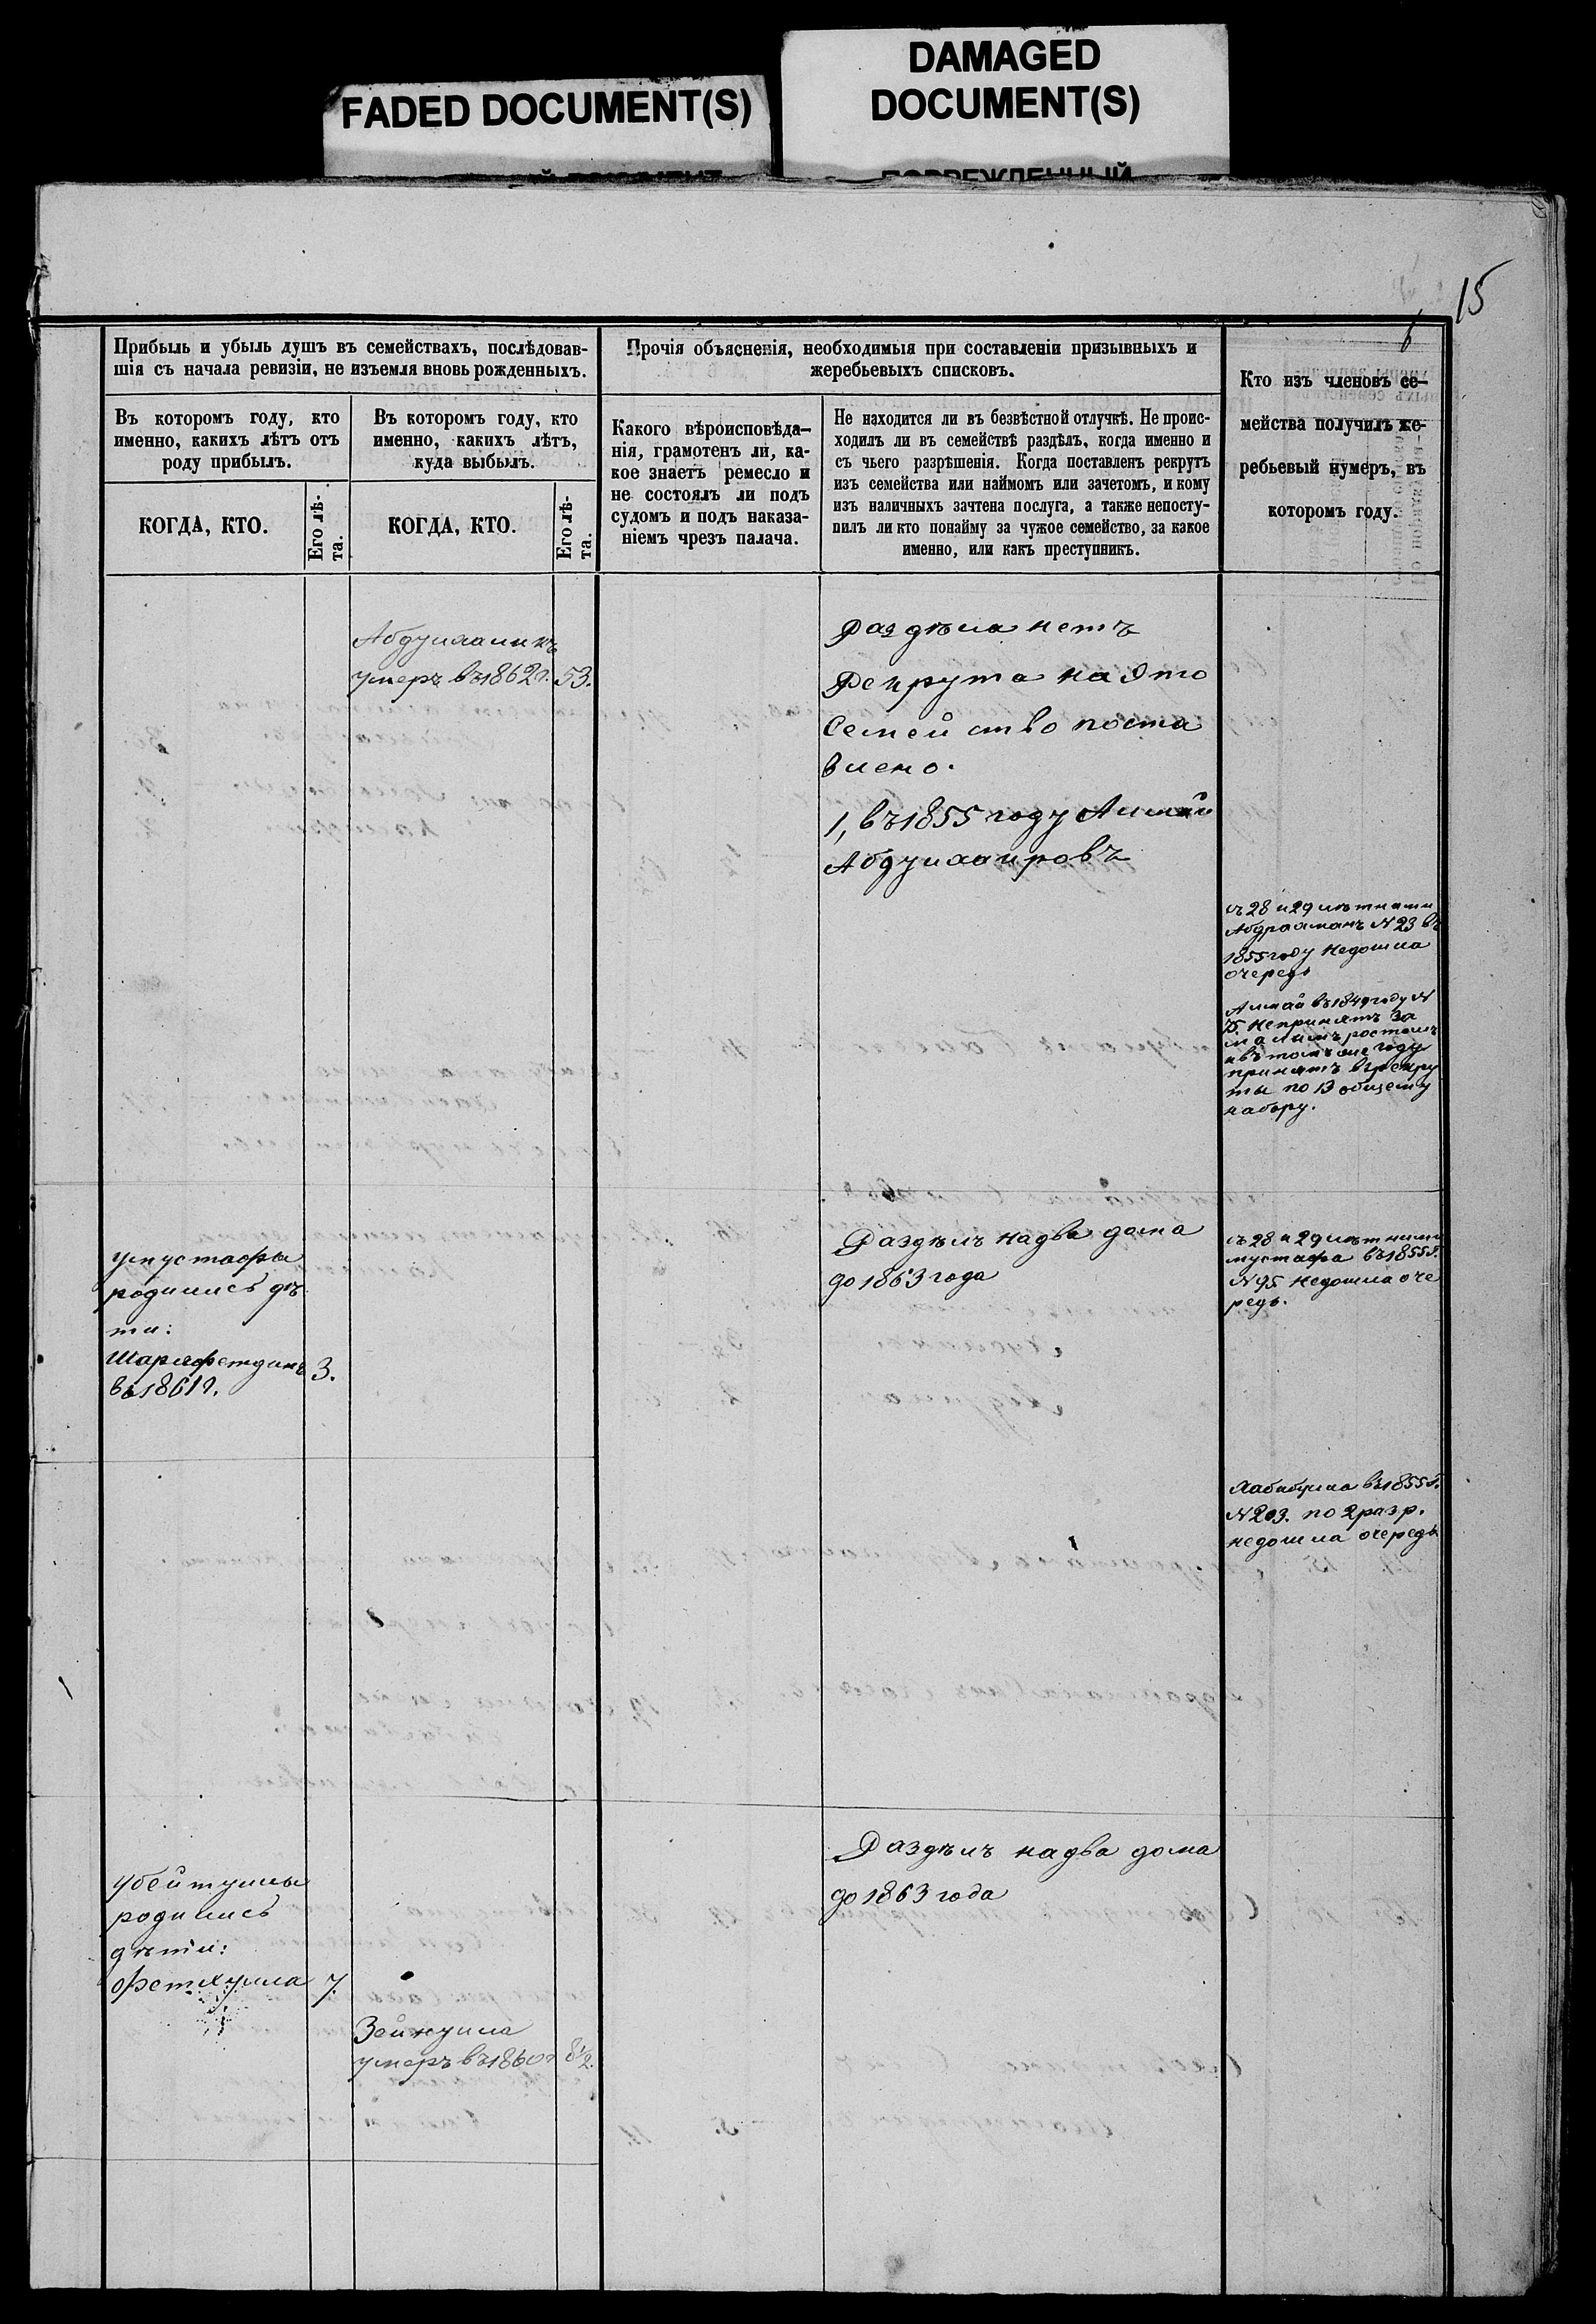 FADED DOCUMENT(S)
DAMAGED
DOCUMENT(S)
ПОВРЕЖДЕННЫЙ
15
6
Прибыль и убыль душъ въ семействахъ, послѣдовав-
шія съ начала ревизіи, не изъемля вновь рожденныхъ.
Въ которомъ году, кто
именно, какихъ лѣтъ отъ
роду прибылъ.
КОГДА, КТО.
Его лѣ-
та.
Въ которомъ году, кто
именно, какихъ лѣтъ,
куда выбылъ.
КОГДА, КТО.
Его лѣ-
та.
Прочія объясненія, необходимыя при составленіи призывныхъ и
жеребьевыхъ списковъ.
Какого вѣроисповѣда-
нія, грамотенъ ли, ка-
кое знаетъ ремесло и
не состоялъ ли подъ
судомъ и подъ наказа-
ніемъ чрезъ палача.
Не находится ли въ безвѣстной отлучкѣ. Не проис-
ходилъ ли въ семействѣ раздѣлъ, когда именно и
съ чьего разрѣшенія. Когда поставленъ рекрутъ
изъ семейства или наймомъ или зачетомъ, и кому
изъ наличныхъ зачтена послуга, а также непосту-
пилъ ли кто понайму за чужое семейство, за какое
именно, или какъ преступникъ.
Кто изъ членовъ се-
мейства получилъ же-
ребьевый нумеръ, въ
которомъ году.
умеръ въ 1862 г. 53.
Раздѣла нетъ
Рекрута на Это
Семейство поста
влено.
1, въ 1855 году
съ 28 и 29 лѣтними
Абдрахманъ N 23 въ
1855 году недошла
очередь
въ 1849 году N
75. непринятъ за
малимъ ростомъ
и въ томъ же году
принятъ врекру
ты по 13 общему
набору.
умустафы
родились дѣ
ти:
Шаряфетдинъ 3.
въ 1861 г.
Раздѣлъ надва дома
до 1863 года
съ 28 и 29 лѣтними
мустафа въ 1855 г.
N 95 недошла оче
редь.
Хабибулла въ 1855 г.
N 203. по 2 разр.
недошла очередь
убейтуллы
родились
дѣти:
Фетхулла 7.
Зейнулла
умеръ въ 1860 г 8½.
Раздѣлъ надва дома
до 1863 года